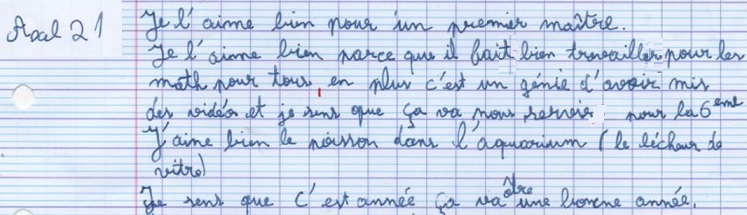 Axal 21
Je l'aime bien pour un premier maître.
Je l'aime bien parce que il fait bien travailler pour les
math pour tous, en plus c'est un génie d'avoir mis
des vidéos et je sens que ça va nous servir pour la 6eme
J'aime bien le poisson dans l'aquarium (le lécheur de
vitre)
Je sens que c'est année ça va être une bonne année.